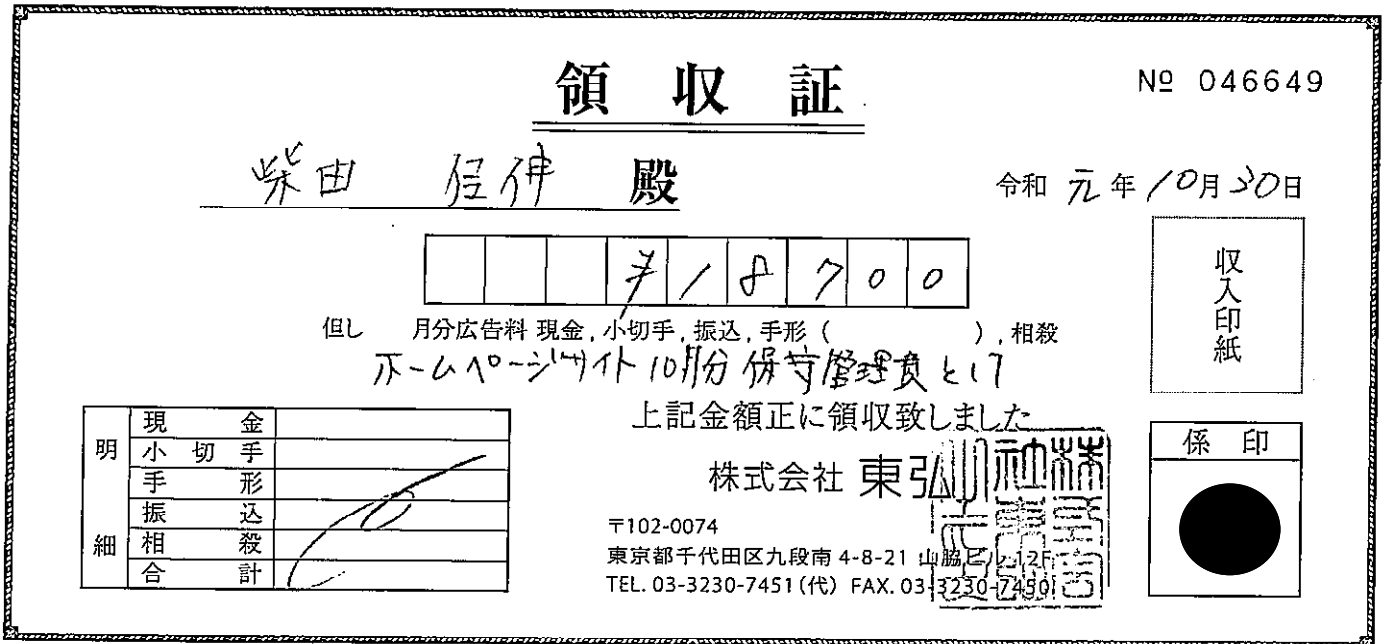 領収証
№ 046649
柴田 殿
令和 元年 10月30日
¥18700
収入印紙
但し 月分広告料 現金, 小切手, 振込, 手形 ( ), 相殺
ホームページサイト10月分保守管理費として
上記金額正に領収致しました
明細
現金
小切手
手形
振込
相殺
合計
株式会社 東弘
〒102-0074
東京都千代田区九段南 4-8-21 山脇ビル 12F
TEL. 03-3230-7451(代) FAX. 03-3230-7450
係印